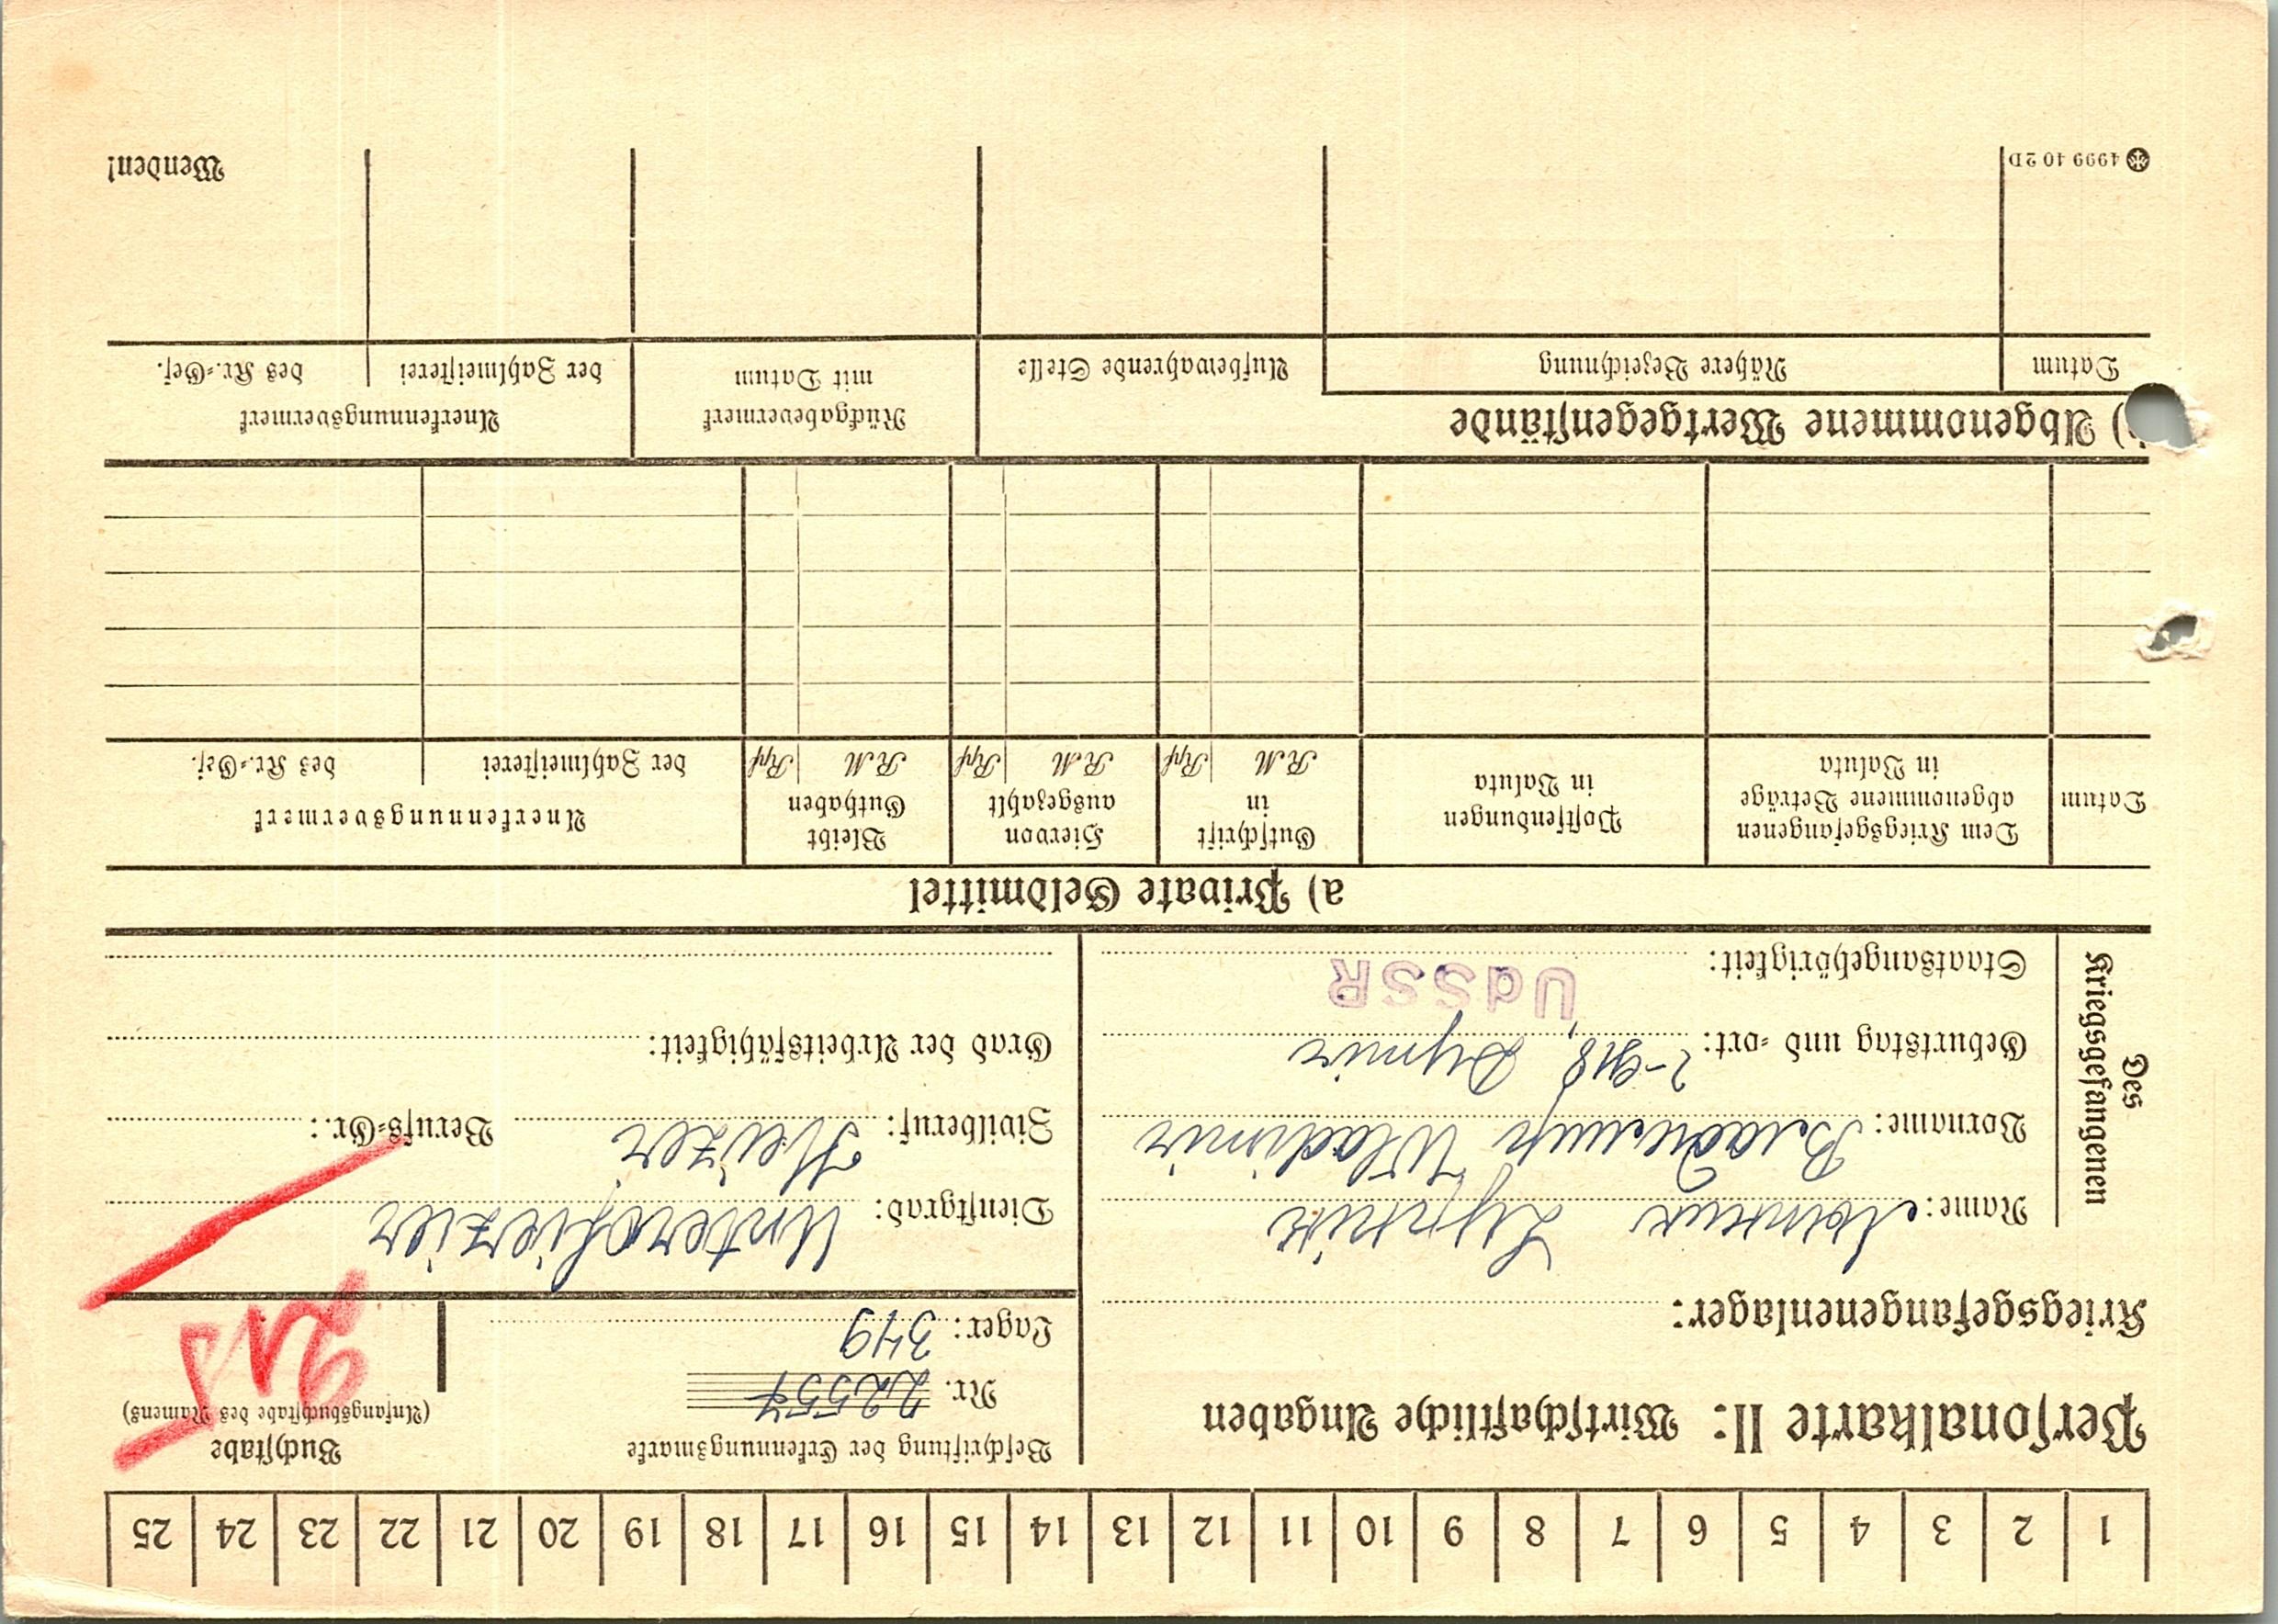 1 2 3 4 5 6 7 8 9 10 11 12 13 14 15 16 17 18 19 20 21 22 23 24 25
Personalkarte II: Wirtschaftliche Angaben
Kriegsgefangenenlager:
Beschriftung der Erkennungsmarke
Nr. 22557
Lager: 349
Buchstabe
(Anfangsbuchstabe des Namens)
Des Kriegsgefangenen
Name:
Vorname: Владимир Wladimir
Geburtstag und -ort: ?-918,
Staatsangehörigkeit: UdSSR
Dienstgrad: Unteroffiezier
Zivilberuf: Heizer Berufs-Gr.:
Grad der Arbeitsfähigkeit:
a) Private Geldmittel
Datum
Dem Kriegsgefangenen abgenommene Beträge in Valuta
Postsendungen in Valuta
Gutschrift in RM Rpf
Hiervon ausgezahlt RM Rpf
Bleibt Guthaben RM Rpf
Anerkennungsvermerk
der Zahlmeisterei des Kr.-Gef.
) Abgenommene Wertgegenstände
Datum
Nähere Bezeichnung
Aufbewahrende Stelle
Rückgabevermerk mit Datum
Anerkennungsvermerk
der Zahlmeisterei des Kr.-Gef.
4999 40 2D
Wenden!